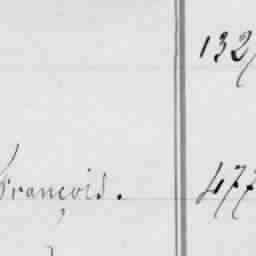 132
François. 477